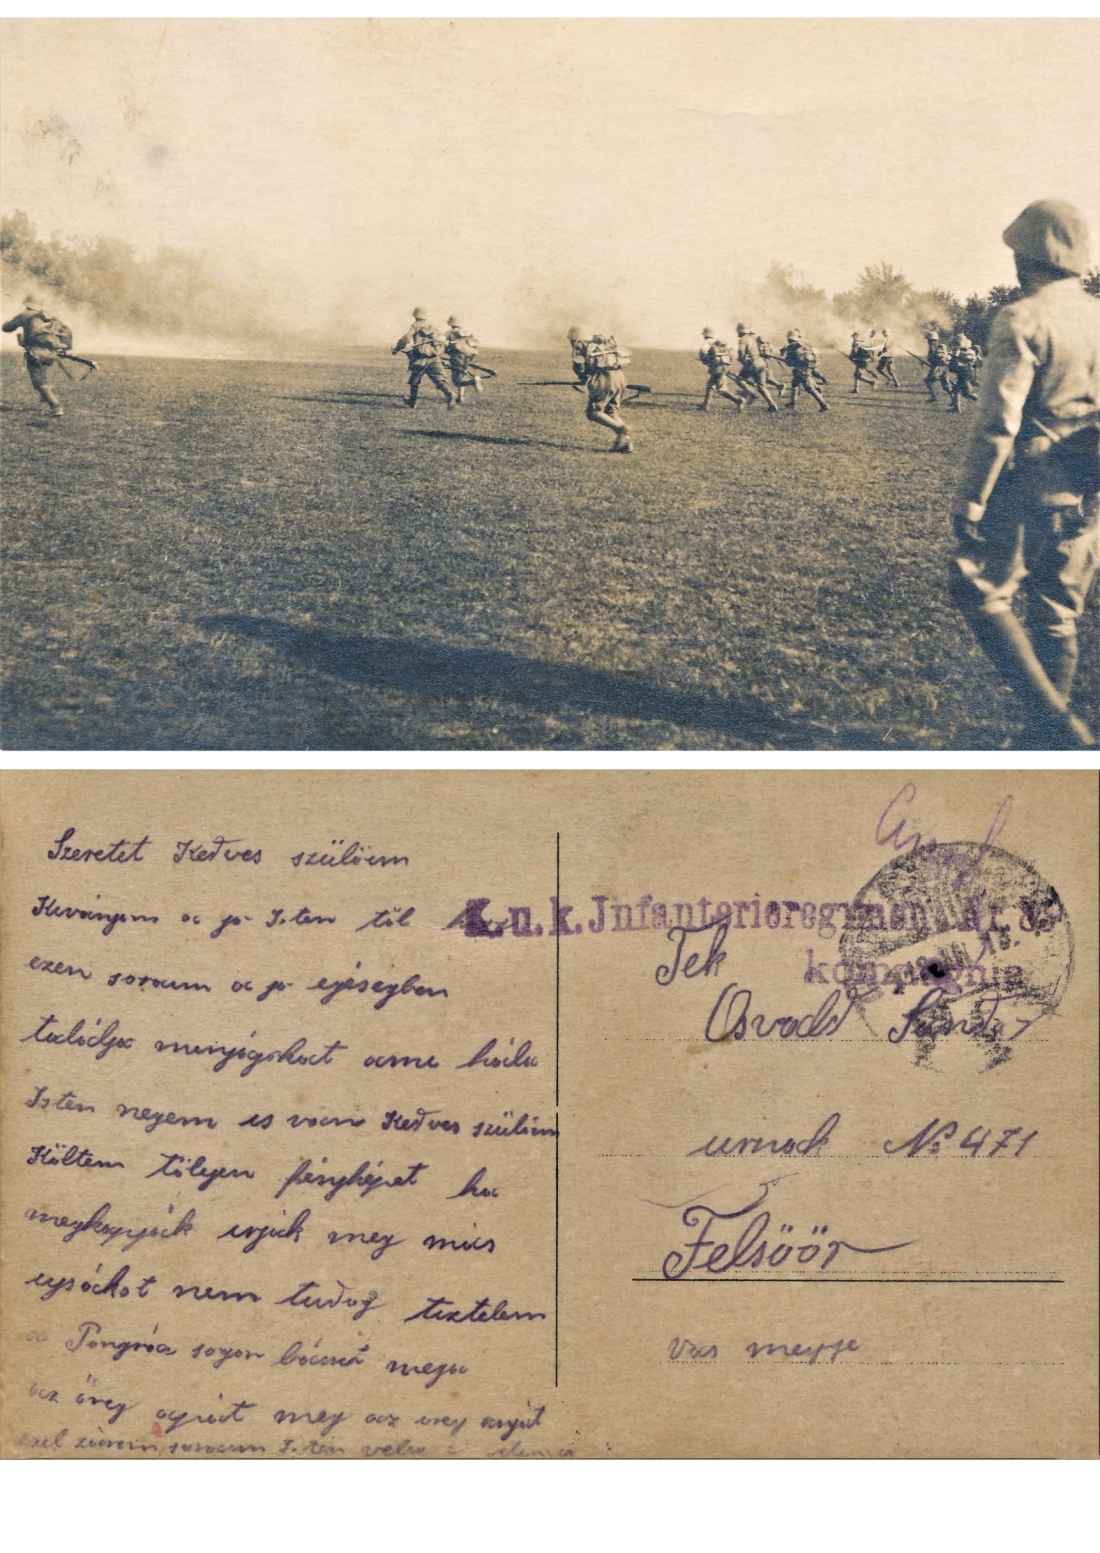 Szeretet Kedves szülőim
Kivánom a jó Isten től
ezen soraim a jó egéségben
taládja menyágokat ame hála
Isten negem is van Kedves szülőim
Költem tőlegen fényképet ha
megkapják irják meg mács
ujsákot nem tudog tisztelem
a Pongrác sogon bácsit mega
az öreg apát meg az öreg anyát
ezel zárom soraim Isten vele
K.u.k. Infanterieregiment Nr. 83
kompagnie
Tek
Osvald Sándor
urnack No 471
Felsöör
Vas megye